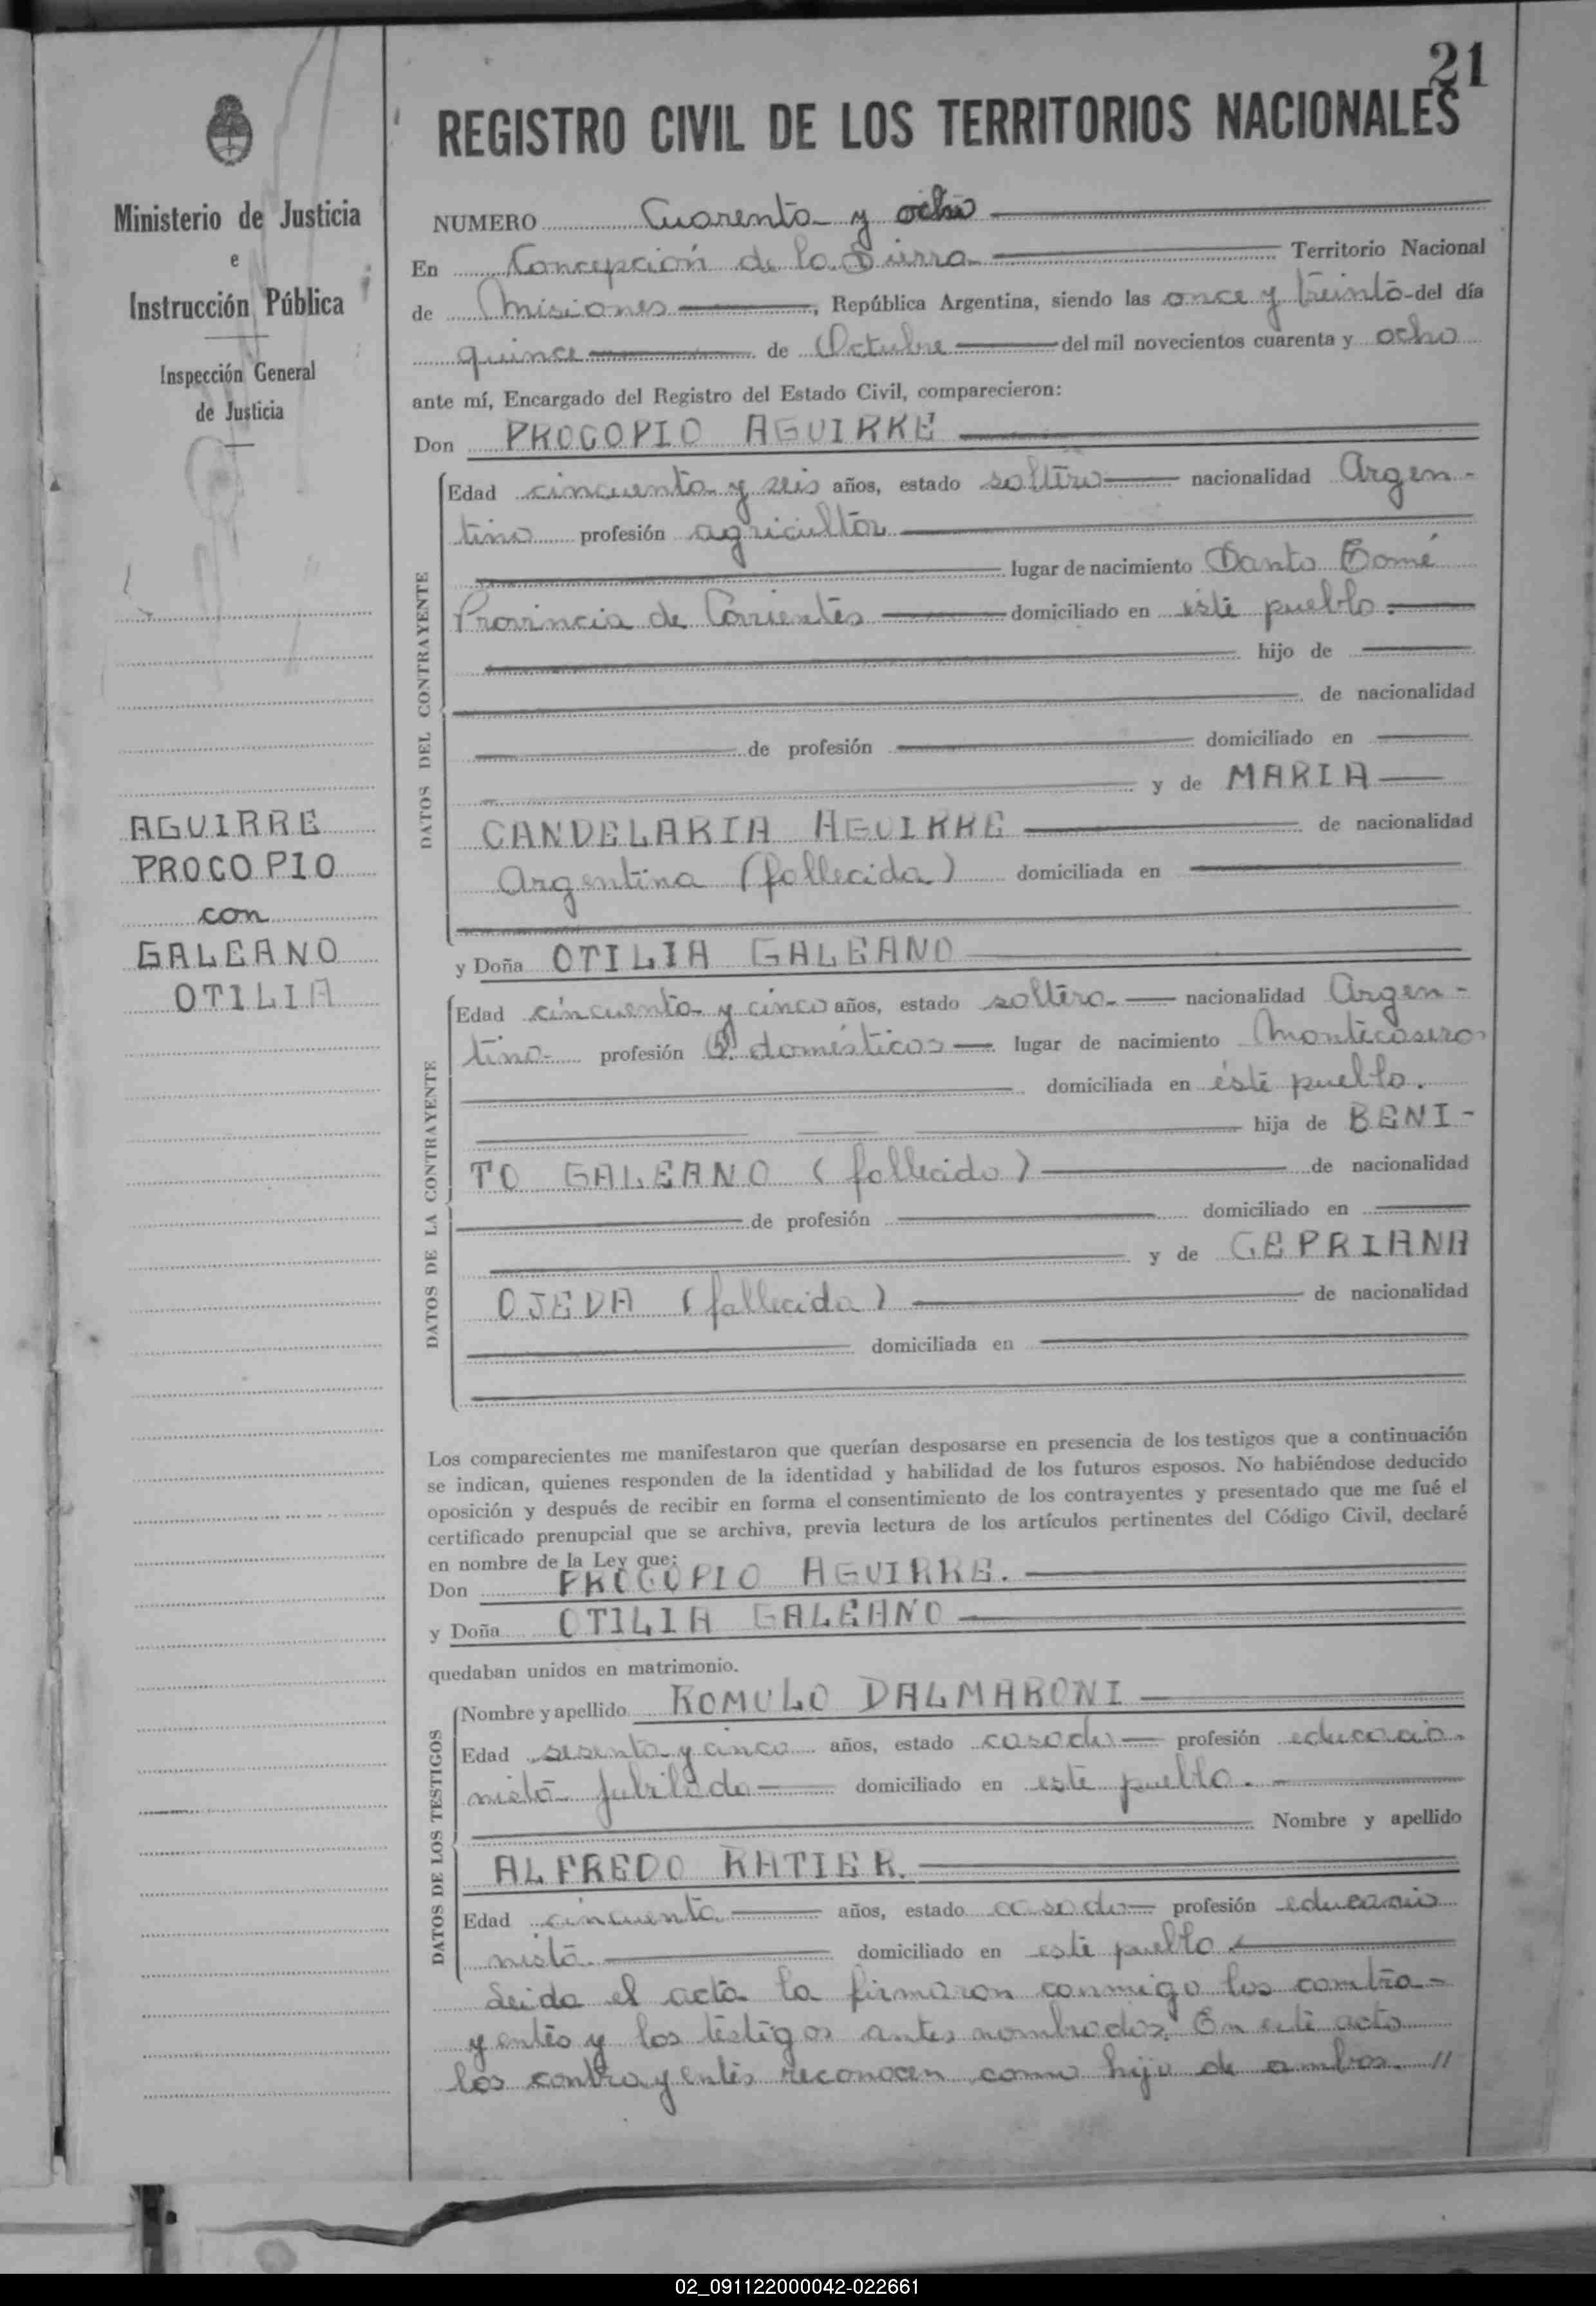 21
REGISTRO CIVIL DE LOS TERRITORIOS NACIONALES
Ministerio de Justicia
e
Instrucción Pública
Inspección General
de Justicia
AGUIRRE
PROCOPIO
con
GALEANO
OTILIA
NUMERO Cuarenta y ocho
En Concepción de la Sierra Territorio Nacional
de Misiones, República Argentina, siendo las once y treinta del día
quince de Octubre del mil novecientos cuarenta y ocho
ante mí, Encargado del Registro del Estado Civil, comparecieron:
Don PROCOPIO AGUIRRE
DATOS DEL CONTRAYENTE
Edad cincuenta y seis años, estado soltero nacionalidad Argen-
tino profesión agricultor
lugar de nacimiento Santo Tomé
Provincia de Corrientes domiciliado en este pueblo.
hijo de
de nacionalidad
de profesión domiciliado en
y de MARIA
CANDELARIA AGUIRRE de nacionalidad
Argentina (fallecida) domiciliada en
y Doña OTILIA GALEANO
DATOS DE LA CONTRAYENTE
Edad cincuenta y cinco años, estado soltera nacionalidad Argen-
tina profesión Q. domésticos lugar de nacimiento Montecasero
domiciliada en éste pueblo.
hija de BENI-
TO GALEANO (fallecido) de nacionalidad
de profesión domiciliado en
y de CEPRIANA
OJEDA (fallecida) de nacionalidad
domiciliada en
Los comparecientes me manifestaron que querían desposarse en presencia de los testigos que a continuación
se indican, quienes responden de la identidad y habilidad de los futuros esposos. No habiéndose deducido
oposición y después de recibir en forma el consentimiento de los contrayentes y presentado que me fué el
certificado prenupcial que se archiva, previa lectura de los artículos pertinentes del Código Civil, declaré
en nombre de la Ley que:
Don PROCOPIO AGUIRRE.
y Doña OTILIA GALEANO
quedaban unidos en matrimonio.
DATOS DE LOS TESTIGOS
Nombre y apellido ROMULO DALMARONI
Edad sesenta y cinco años, estado casado profesión educacio-
nista jubilado domiciliado en este pueblo.
Nombre y apellido
ALFREDO RATIER.
Edad cincuenta años, estado casado profesión educacio
nista. domiciliado en este pueblo
Leida el acta la firmaron conmigo los contra-
yentes y los testigos antes nombrados. En este acto
los contrayentes reconocen como hijo de ambos. //
02_091122000042-022661